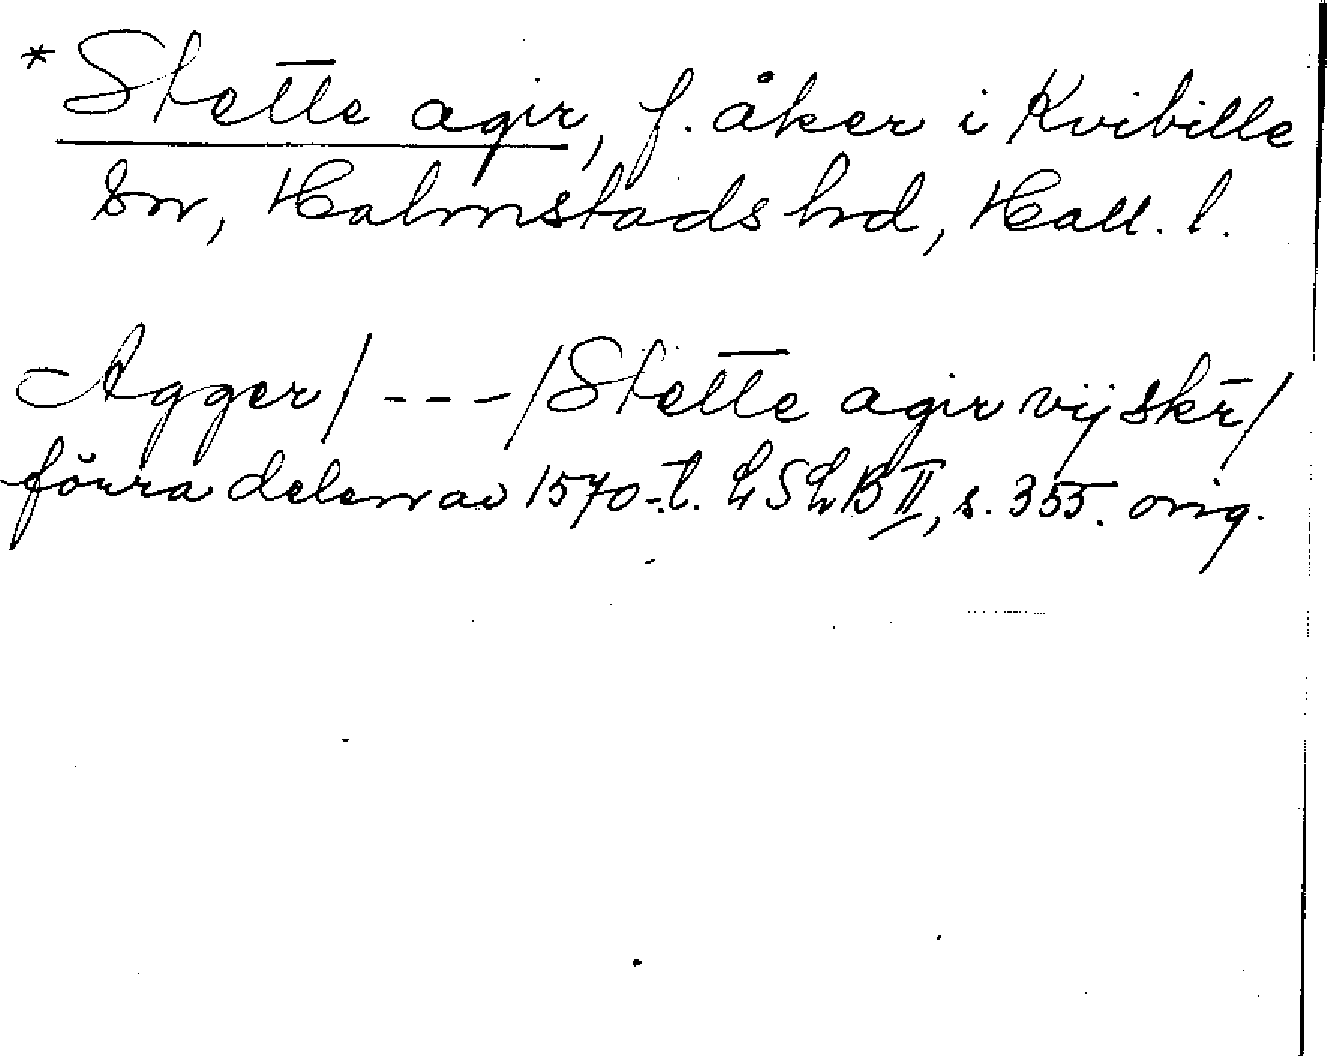 * Stette agir, f. åker i Kvibille
sn, Halmstads hd, Hall. l.
Agger/---/Stette agir vij skr̄/
förra delen av 1570-t. LSLB II, s. 355. orig.